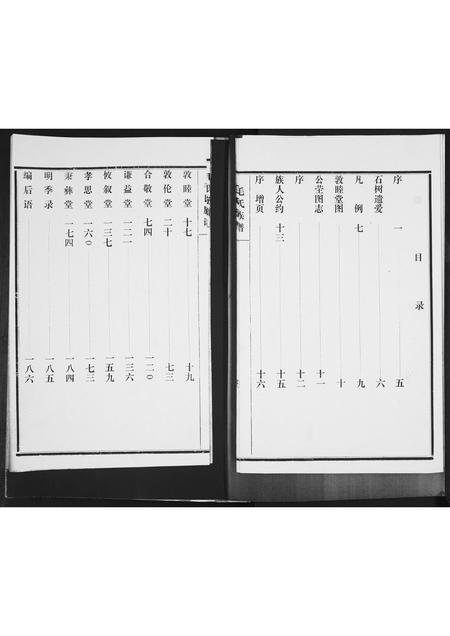 目 录
序 一 五
石树遗爱 六
凡 例 七 九
敦睦堂图 十
公茔图志 十一
序 十二
族人公约 十三 十五
序 增页 十六
毛氏族谱
敦睦堂 十七 十九
敦伦堂 二十 七三
合敬堂 七四 一二〇
谦益堂 一二一 一三六
攸叙堂 一三七 一五九
孝思堂 一六〇 一七三
秉彝堂 一七四 一八四
明季录 一八五
编后语 一八六